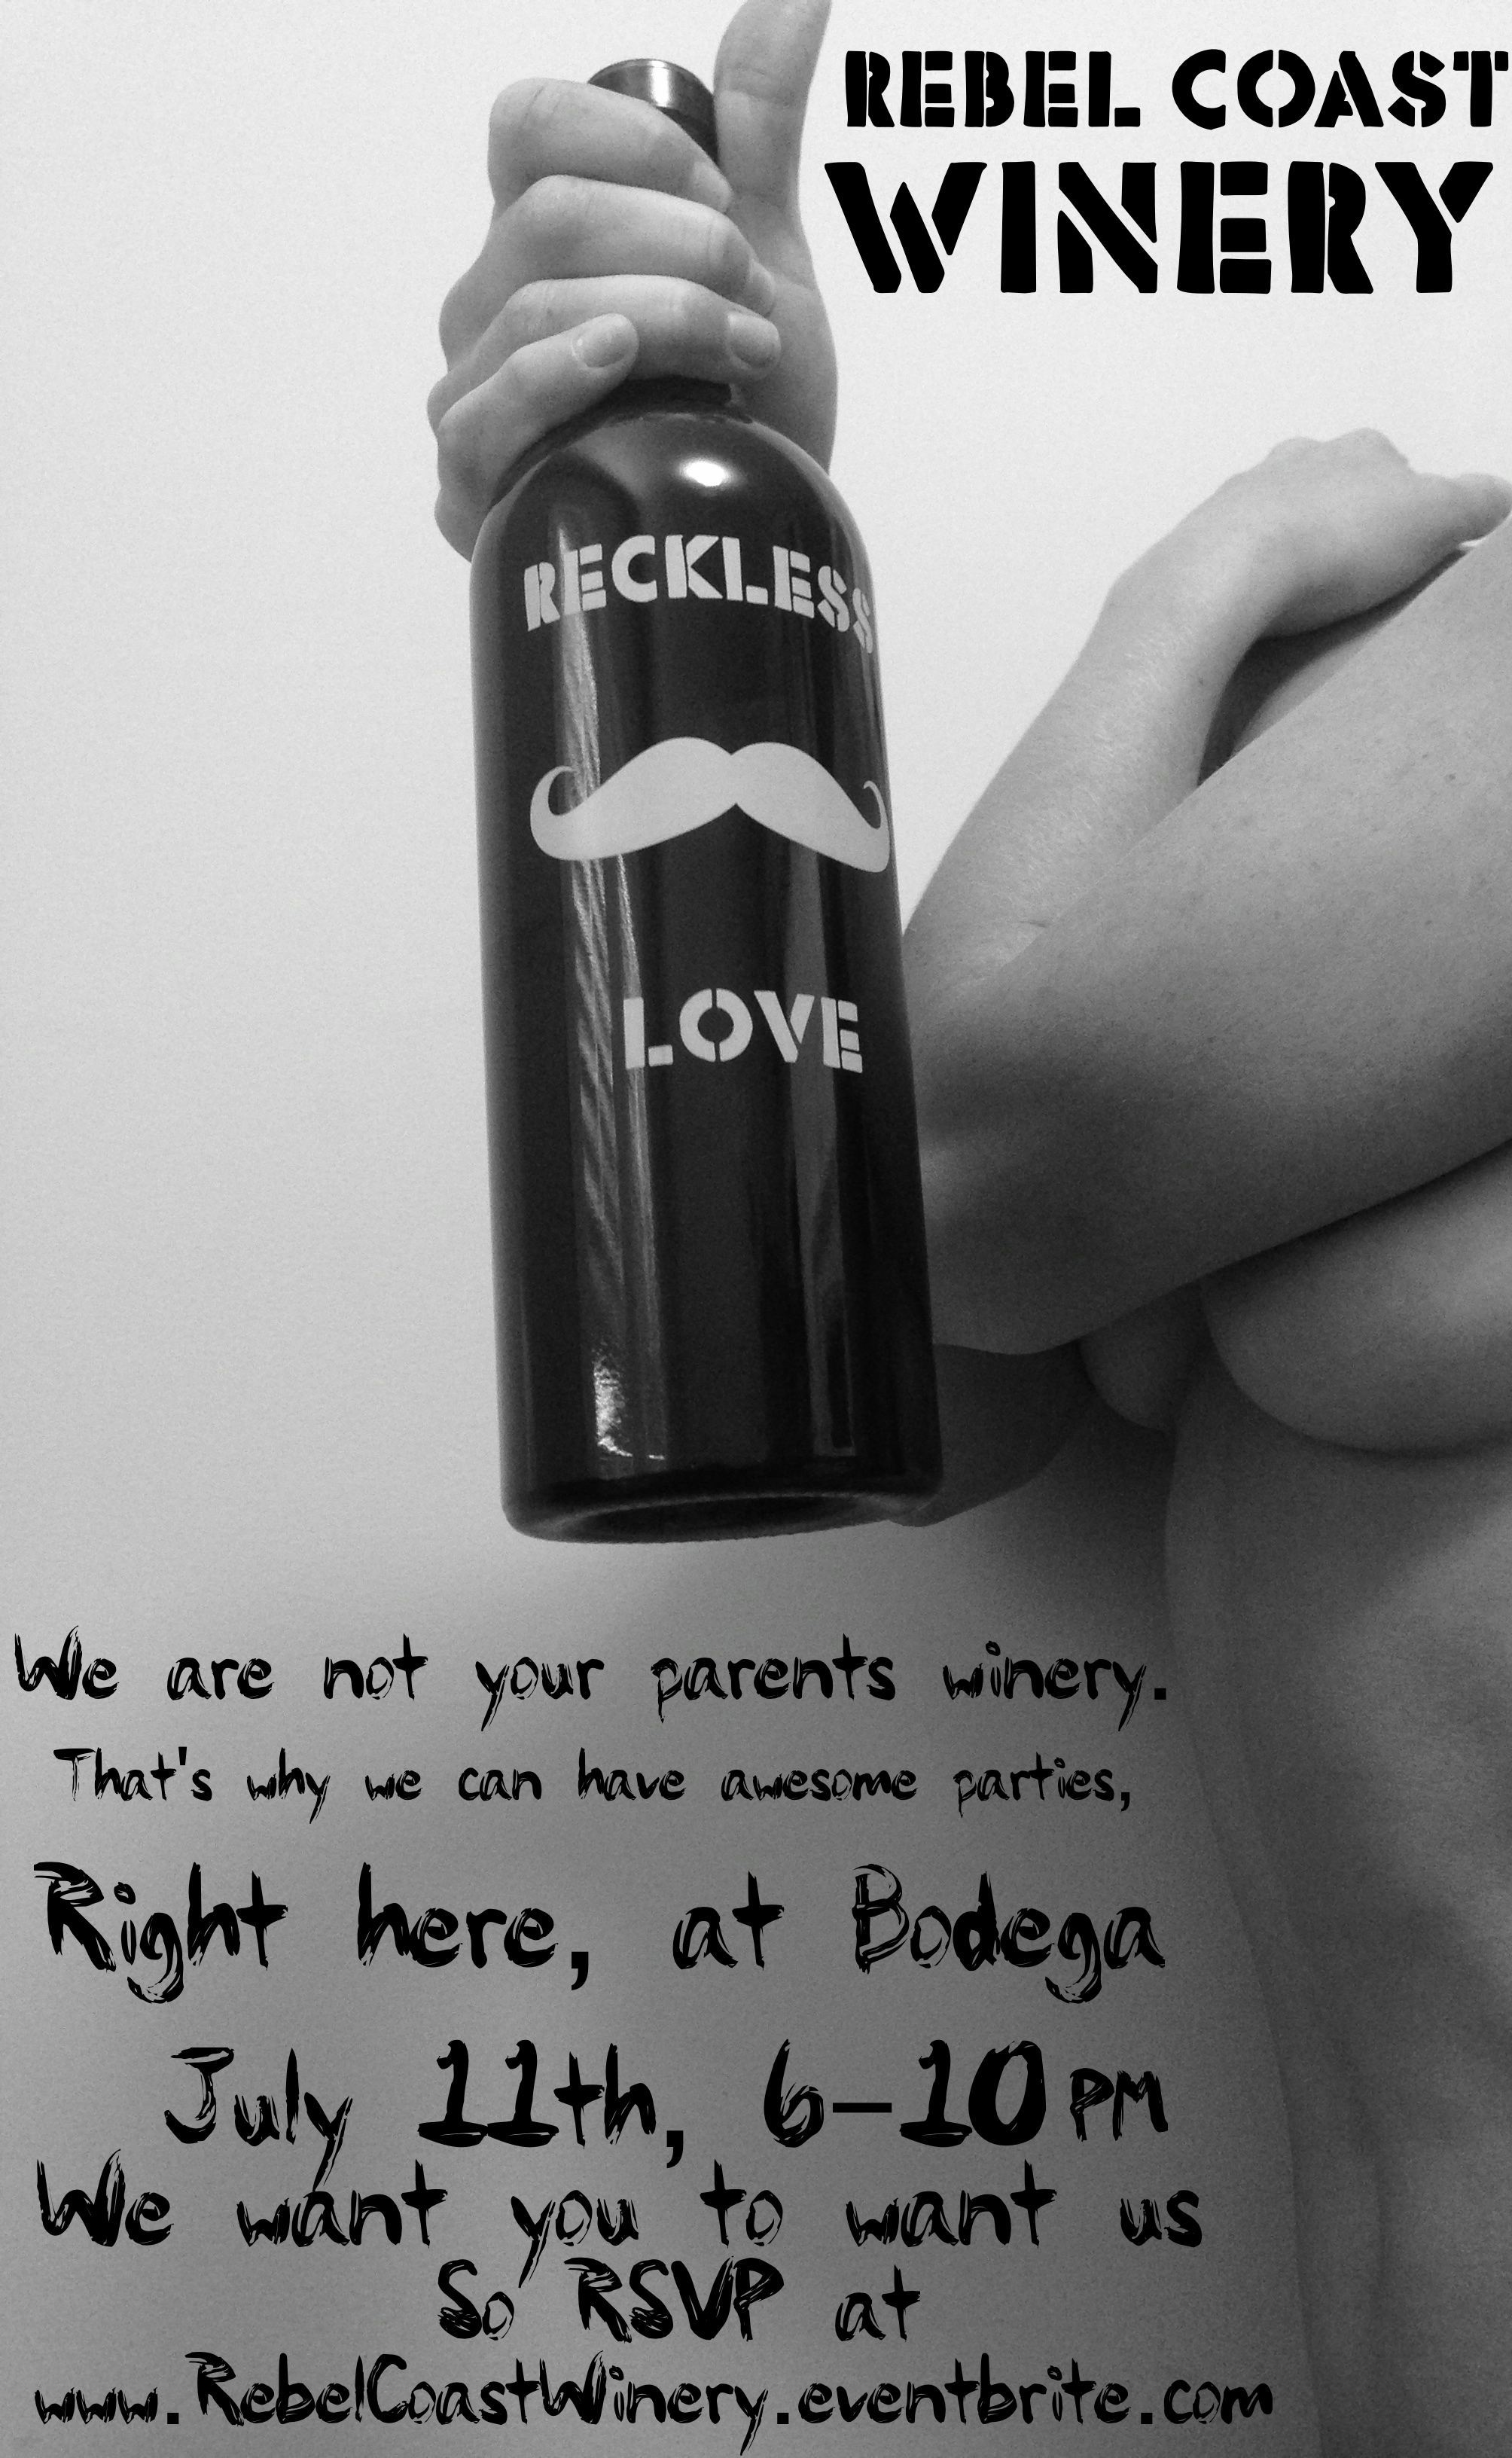 REBEL COAST
WINERY
RECKLESS
LOVE
We are not your parents winery.
That's why we can have awesome parties,
Right here, at Bodega
July 11th, 6-10PM
We want you to want us
So RSVP at
www.RebelCoastWinery.eventbrite.com